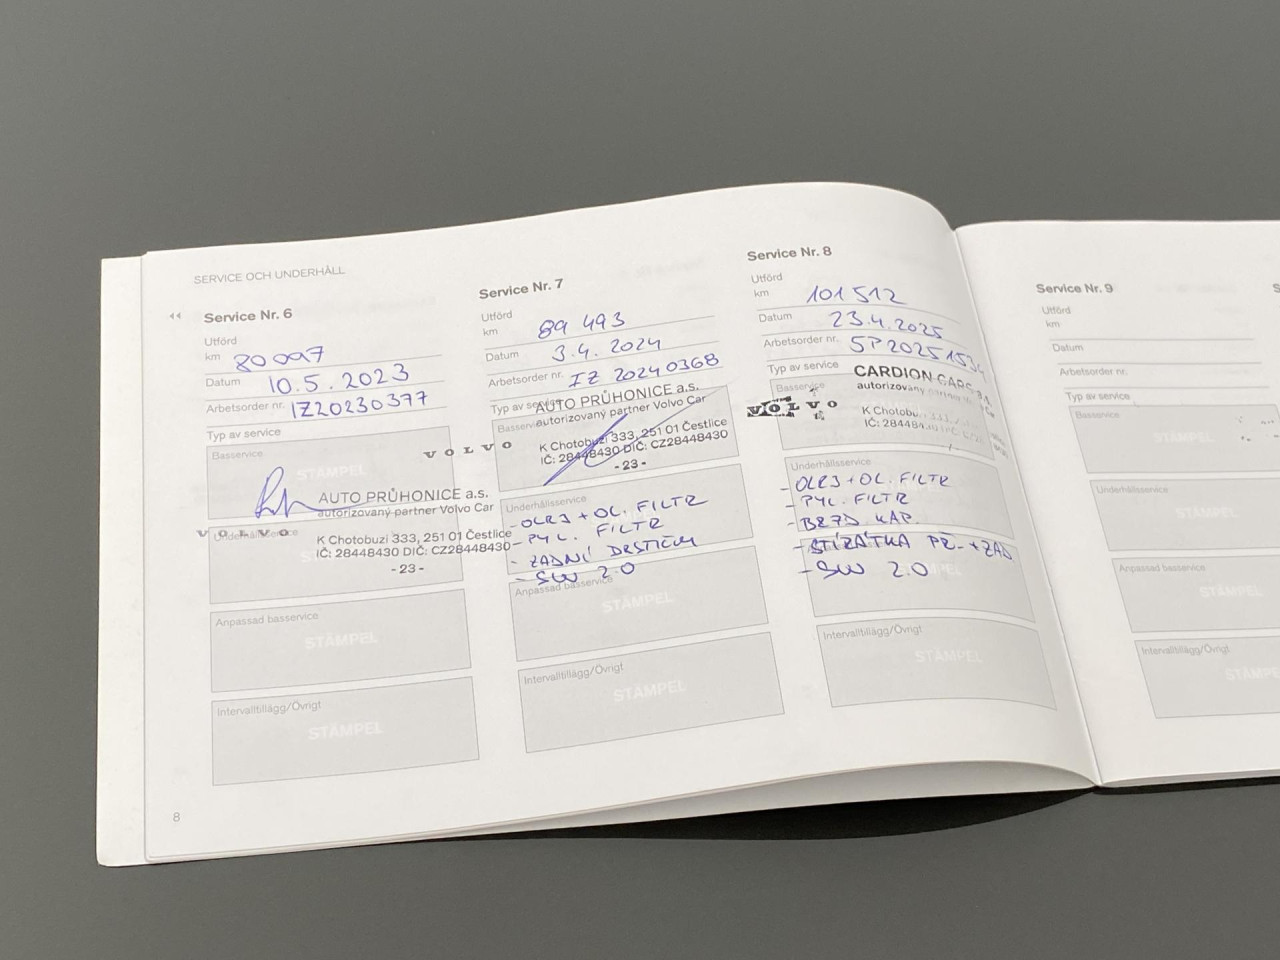 SERVICE OCH UNDERHÅLL
Service Nr. 6
Utförd
km 80097
Datum 10.5.2023
Arbetsorder nr. IZ20230377
Typ av service
Basservice
STÄMPEL
AUTO PRŮHONICE a.s.
autorizovaný partner Volvo Car
VOLVO
Underhållsservice
K Chotobuzi 333, 251 01 Čestlice
IČ: 28448430 DIČ: CZ28448430
- 23 -
Anpassad basservice
STÄMPEL
Intervalltillägg/Övrigt
STÄMPEL
8
Service Nr. 7
Utförd
km 89 493
Datum 3.4.2024
Arbetsorder nr. IZ 20240368
Typ av service
AUTO PRŮHONICE a.s.
autorizovaný partner Volvo Car
Basservice
VOLVO
K Chotobuzi 333, 251 01 Čestlice
IČ: 28448430 DIČ: CZ28448430
- 23 -
Underhållsservice
- OLEJ + OL. FILTR
- PYL. FILTR
- ZADNÍ DESTIČKY
- SW 2.0
Anpassad basservice
STÄMPEL
Intervalltillägg/Övrigt
STÄMPEL
Service Nr. 8
Utförd
km 101 512
Datum 23.4.2025
Arbetsorder nr.
Typ av service
CARDION CARS
autorizovaný
Basservice
VOLVO
K Chotobu 333,
IČ: 284484
Underhållsservice
- OLEJ + OL. FILTR
- PYL. FILTR
- BRZD. KAP.
- STÍRÁTKA PŘ. + ZAD.
- SW 2.0
STÄMPEL
Intervalltillägg/Övrigt
STÄMPEL
Service Nr. 9
Utförd
km
Datum
Arbetsorder nr.
Typ av service
Basservice
STÄMPEL
Underhållsservice
STÄMPEL
Anpassad basservice
STÄMPEL
Intervalltillägg/Övrigt